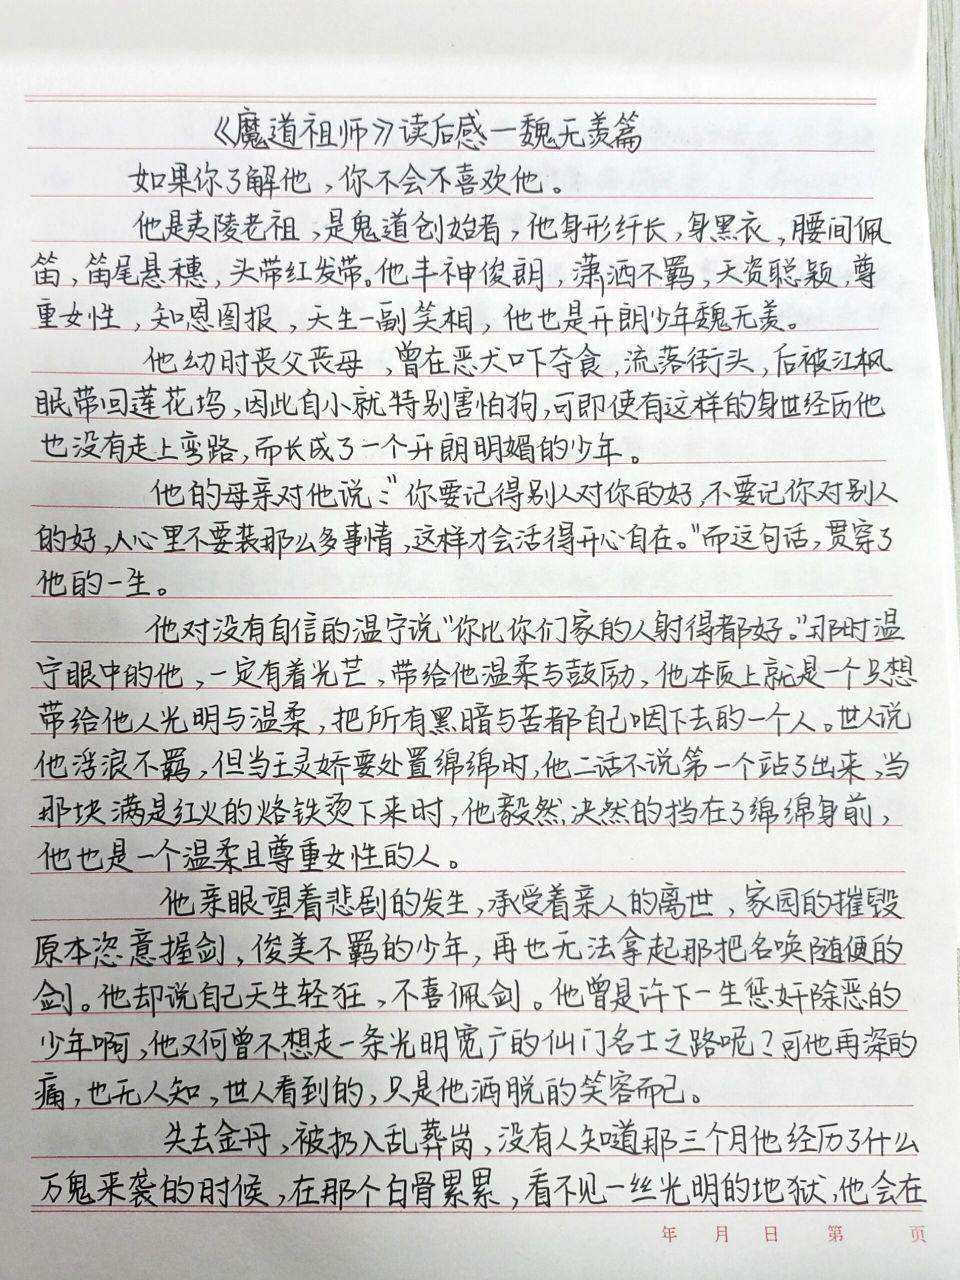 《魔道祖师》读后感—魏无羡篇
如果你了解他，你不会不喜欢他。
他是夷陵老祖，是鬼道创始者，他身形纤长，身黑衣，腰间佩
笛，笛尾悬穗，头带红发带。他丰神俊朗，潇洒不羁，天资聪颖，尊
重女性，知恩图报，天生一副笑相，他也是开朗少年魏无羡。
他幼时丧父丧母，曾在恶犬口下夺食，流落街头，后被江枫
眠带回莲花坞，因此自小就特别害怕狗，可即使有这样的身世经历他
也没有走上弯路，而长成了一个开朗明媚的少年。
他的母亲对他说：“你要记得别人对你的好，不要记你对别人
的好，人心里不要装那么多事情，这样才会活得开心自在。”而这句话，贯穿了
他的一生。
他对没有自信的温宁说“你比你们家的人射得都好。”那时温
宁眼中的他，一定有着光芒，带给他温柔与鼓励，他本质上就是一个只想
带给他人光明与温柔，把所有黑暗与苦都自己咽下去的一个人。世人说
他浮浪不羁，但当王灵娇要处置绵绵时，他二话不说第一个站了出来，当
那块满是红火的烙铁烫下来时，他毅然决然的挡在了绵绵身前，
他也是一个温柔且尊重女性的人。
他亲眼望着悲剧的发生，承受着亲人的离世，家园的摧毁
原本恣意握剑，俊美不羁的少年，再也无法拿起那把名唤随便的
剑。他却说自己天生轻狂，不喜佩剑。他曾是许下一生惩奸除恶的
少年啊，他又何曾不想走一条光明宽广的仙门名士之路呢？可他再深的
痛，也无人知，世人看到的，只是他洒脱的笑容而已。
失去金丹，被扔入乱葬岗，没有人知道那三个月他经历了什么
万鬼来袭的时候，在那个白骨累累，看不见一丝光明的地狱，他会在
年 月 日 第 页